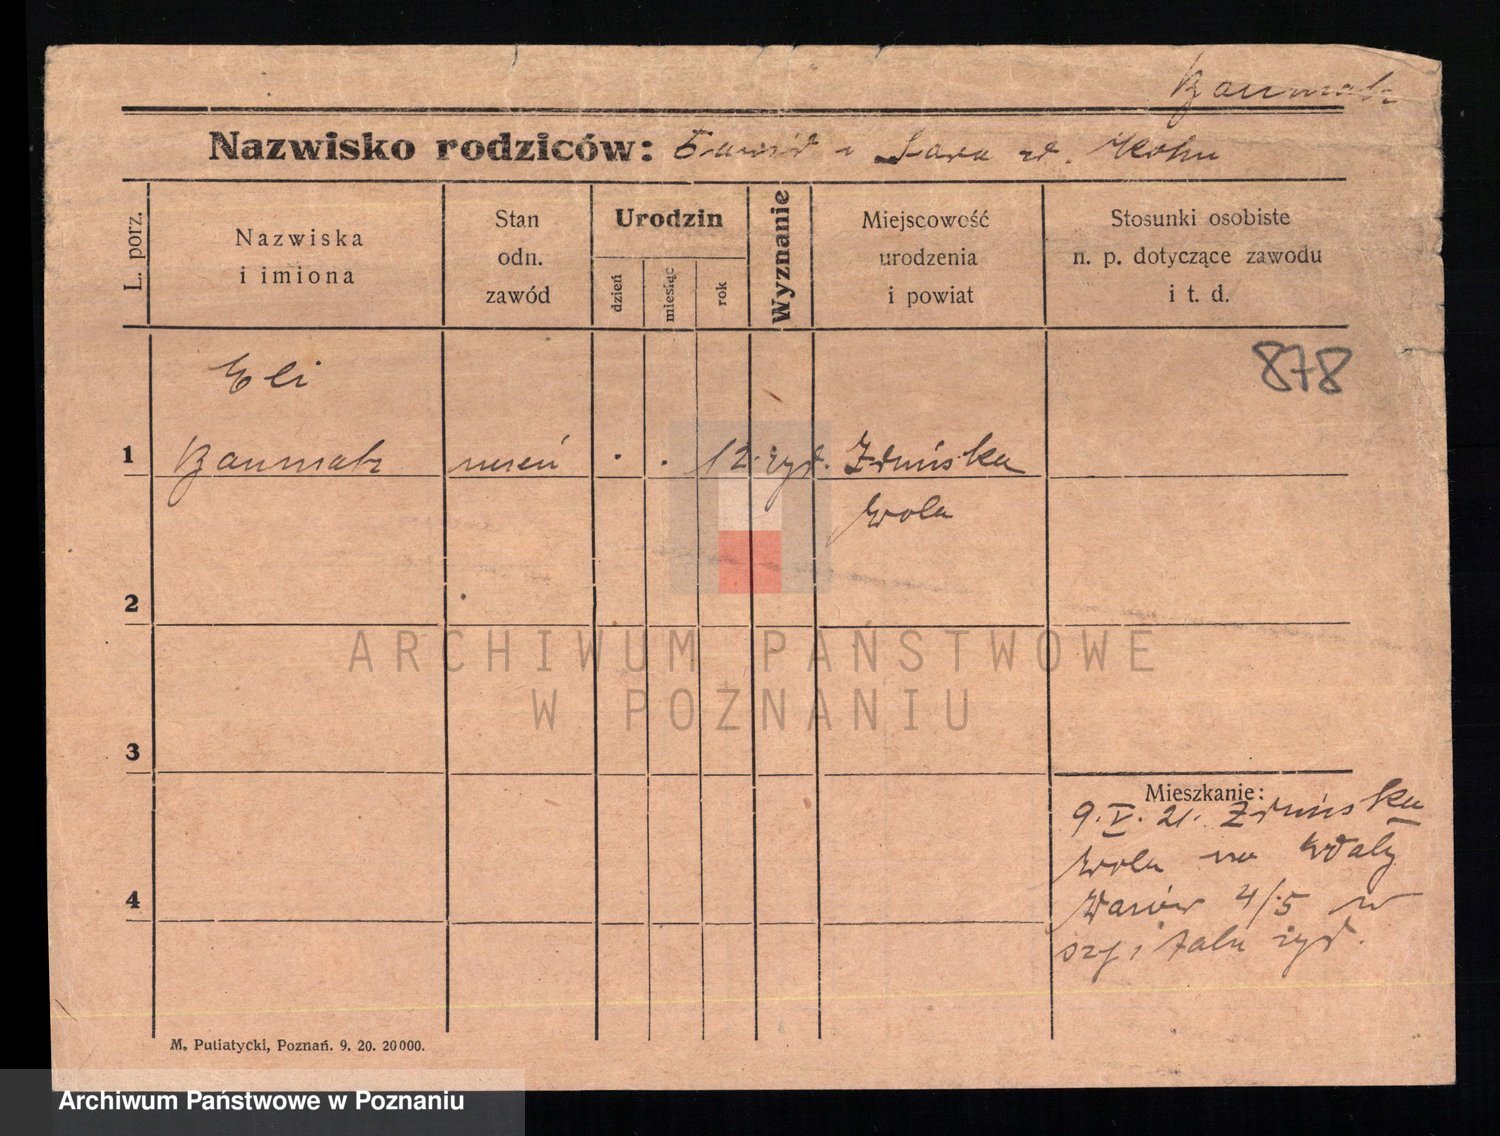 Nazwisko rodziców: Dawid i Sara zd. Kohn
L. porz.
Nazwiska
i imiona
Stan
odn.
zawód
Urodzin
dzień
miesiąc
rok
Wyznanie
Miejscowość
urodzenia
i powiat
Stosunki osobiste
n. p. dotyczące zawodu
i t. d.
878
Eli
1 uczeń . . 12. żyd. Zduńska
Wola
2
3
Mieszkanie:
9.V.21. Zduńska
Wola na Wały
4
4/5 w
szpitalu żyd.
M. Putiatycki, Poznań. 9. 20. 20000.
ARCHIWUM PAŃSTWOWE
W POZNANIU
Archiwum Państwowe w Poznaniu